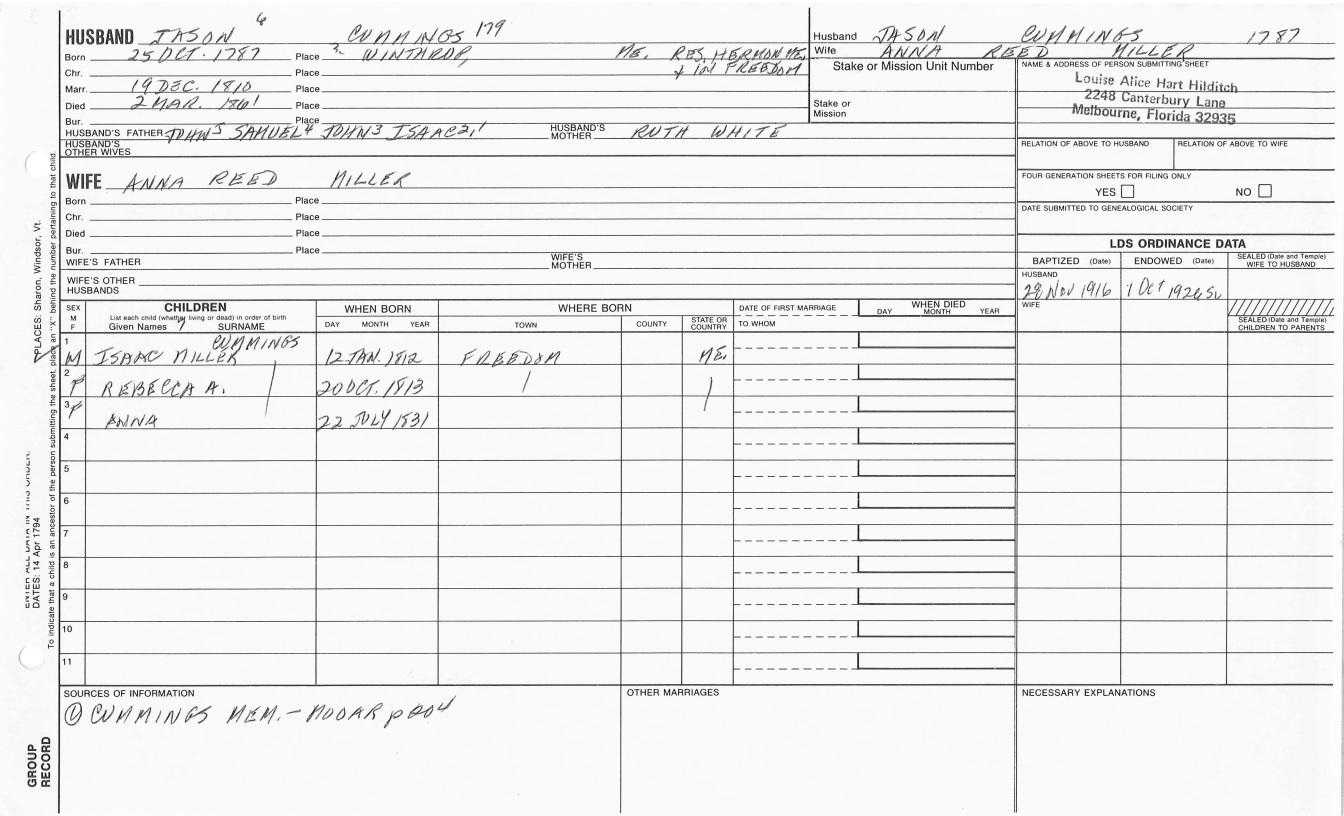 HUSBAND JASON 6 CUMMINGS 179
Born 25 OCT. 1787 Place WINTHROP, ME. RES. HERMON ME.
Chr. Place & in FREEDOM
Marr. 19 DEC. 1810 Place
Died 2 MAR. 1861
Bur. Place
HUSBAND'S FATHER JOHN5 SAMUEL4 JOHN3 ISAAC2,1 HUSBAND'S MOTHER RUTH WHITE
HUSBAND'S OTHER WIVES
WIFE ANNA REED MILLER
Born Place
Chr. Place
Died Place
Bur. Place
WIFE'S FATHER WIFE'S MOTHER
WIFE'S OTHER HUSBANDS
Husband JASON CUMMINGS 1787
Wife ANNA REED MILLER
Stake or Mission Unit Number
Stake or Mission
NAME & ADDRESS OF PERSON SUBMITTING SHEET
Louise Alice Hart Hilditch
2248 Canterbury Lane
Melbourne, Florida 32935
RELATION OF ABOVE TO HUSBAND RELATION OF ABOVE TO WIFE
FOUR GENERATION SHEETS FOR FILING ONLY
YES NO
DATE SUBMITTED TO GENEALOGICAL SOCIETY
LDS ORDINANCE DATA
BAPTIZED (Date) ENDOWED (Date) SEALED (Date and Temple) WIFE TO HUSBAND
HUSBAND
28 Nov 1916 1 Oct 1926 SL
WIFE
SEALED (Date and Temple) CHILDREN TO PARENTS
SEX M F CHILDREN WHEN BORN WHERE BORN DATE OF FIRST MARRIAGE WHEN DIED
List each child (whether living or dead) in order of birth
Given Names 7 SURNAME DAY MONTH YEAR TOWN COUNTY STATE OR COUNTRY TO WHOM DAY MONTH YEAR
1 M ISAAC MILLER CUMMINGS 12 JAN. 1812 FREEDOM ME.
2 F REBECCA A. 20 OCT. 1813
3 F ANNA 22 JULY 1831
4
5
6
7
8
9
10
11
SOURCES OF INFORMATION OTHER MARRIAGES NECESSARY EXPLANATIONS
① CUMMINGS MEM. - MOOAR p 204
PLACES: Sharon, Windsor, Vt.
ENTER ALL DATA IN THIS ORDER:
DATES: 14 Apr 1794
To indicate that a child is an ancestor of the person submitting the sheet, place an "X" behind the number pertaining to that child.
GROUP RECORD